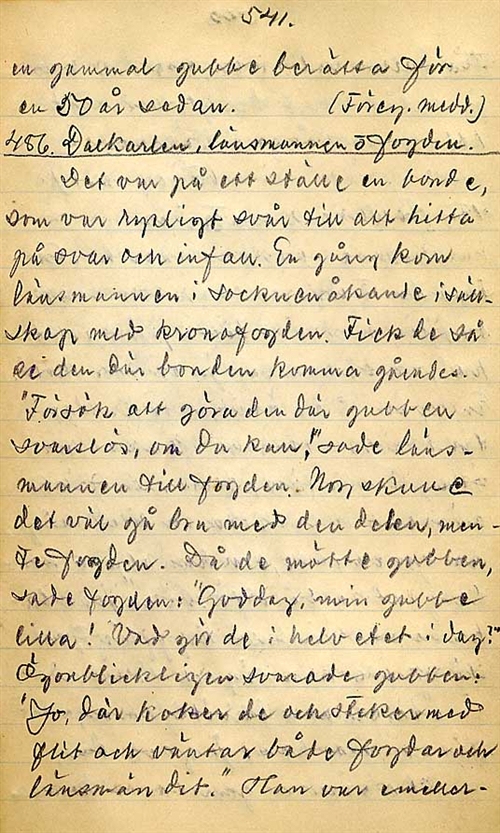 541.
en gammal gubbe berätta för
en 50 år sedan. (Föreg. medd.)
486. Dalkarlen, länsmannen o fogden.
Det var på ett ställe en bonde,
som var rysligt svår till att hitta
på svar och infall. En gång kom
länsmannen i socknen åkande i säll-
skap med kronofogden. Fick de så
se den där bonden komma gåendes.
"Försök att göra den där gubben
svarslös, om du kan!", sade läns-
mannen till fogden. Nog skulle
det väl gå bra med den delen, men-
te fogden. Då de mötte gubben,
sade fogden: "Goddag, min gubbe
lilla! Vad gör de i helvetet i dag?"
Ögonblickligen svarade gubben:
"Jo, där koker de och steker med
flit och väntar både fogdar och
länsmän dit." Han var emeller-